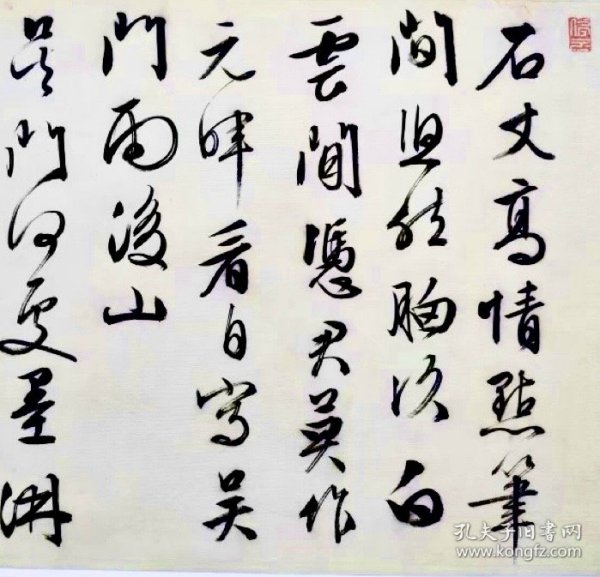 石丈高情點筆
間坦然胸次白
雲間憑君莫作
元暉看自寫吴
門雨後山
吴門何處墨淋
孔夫子旧书网
www.kongfz.com